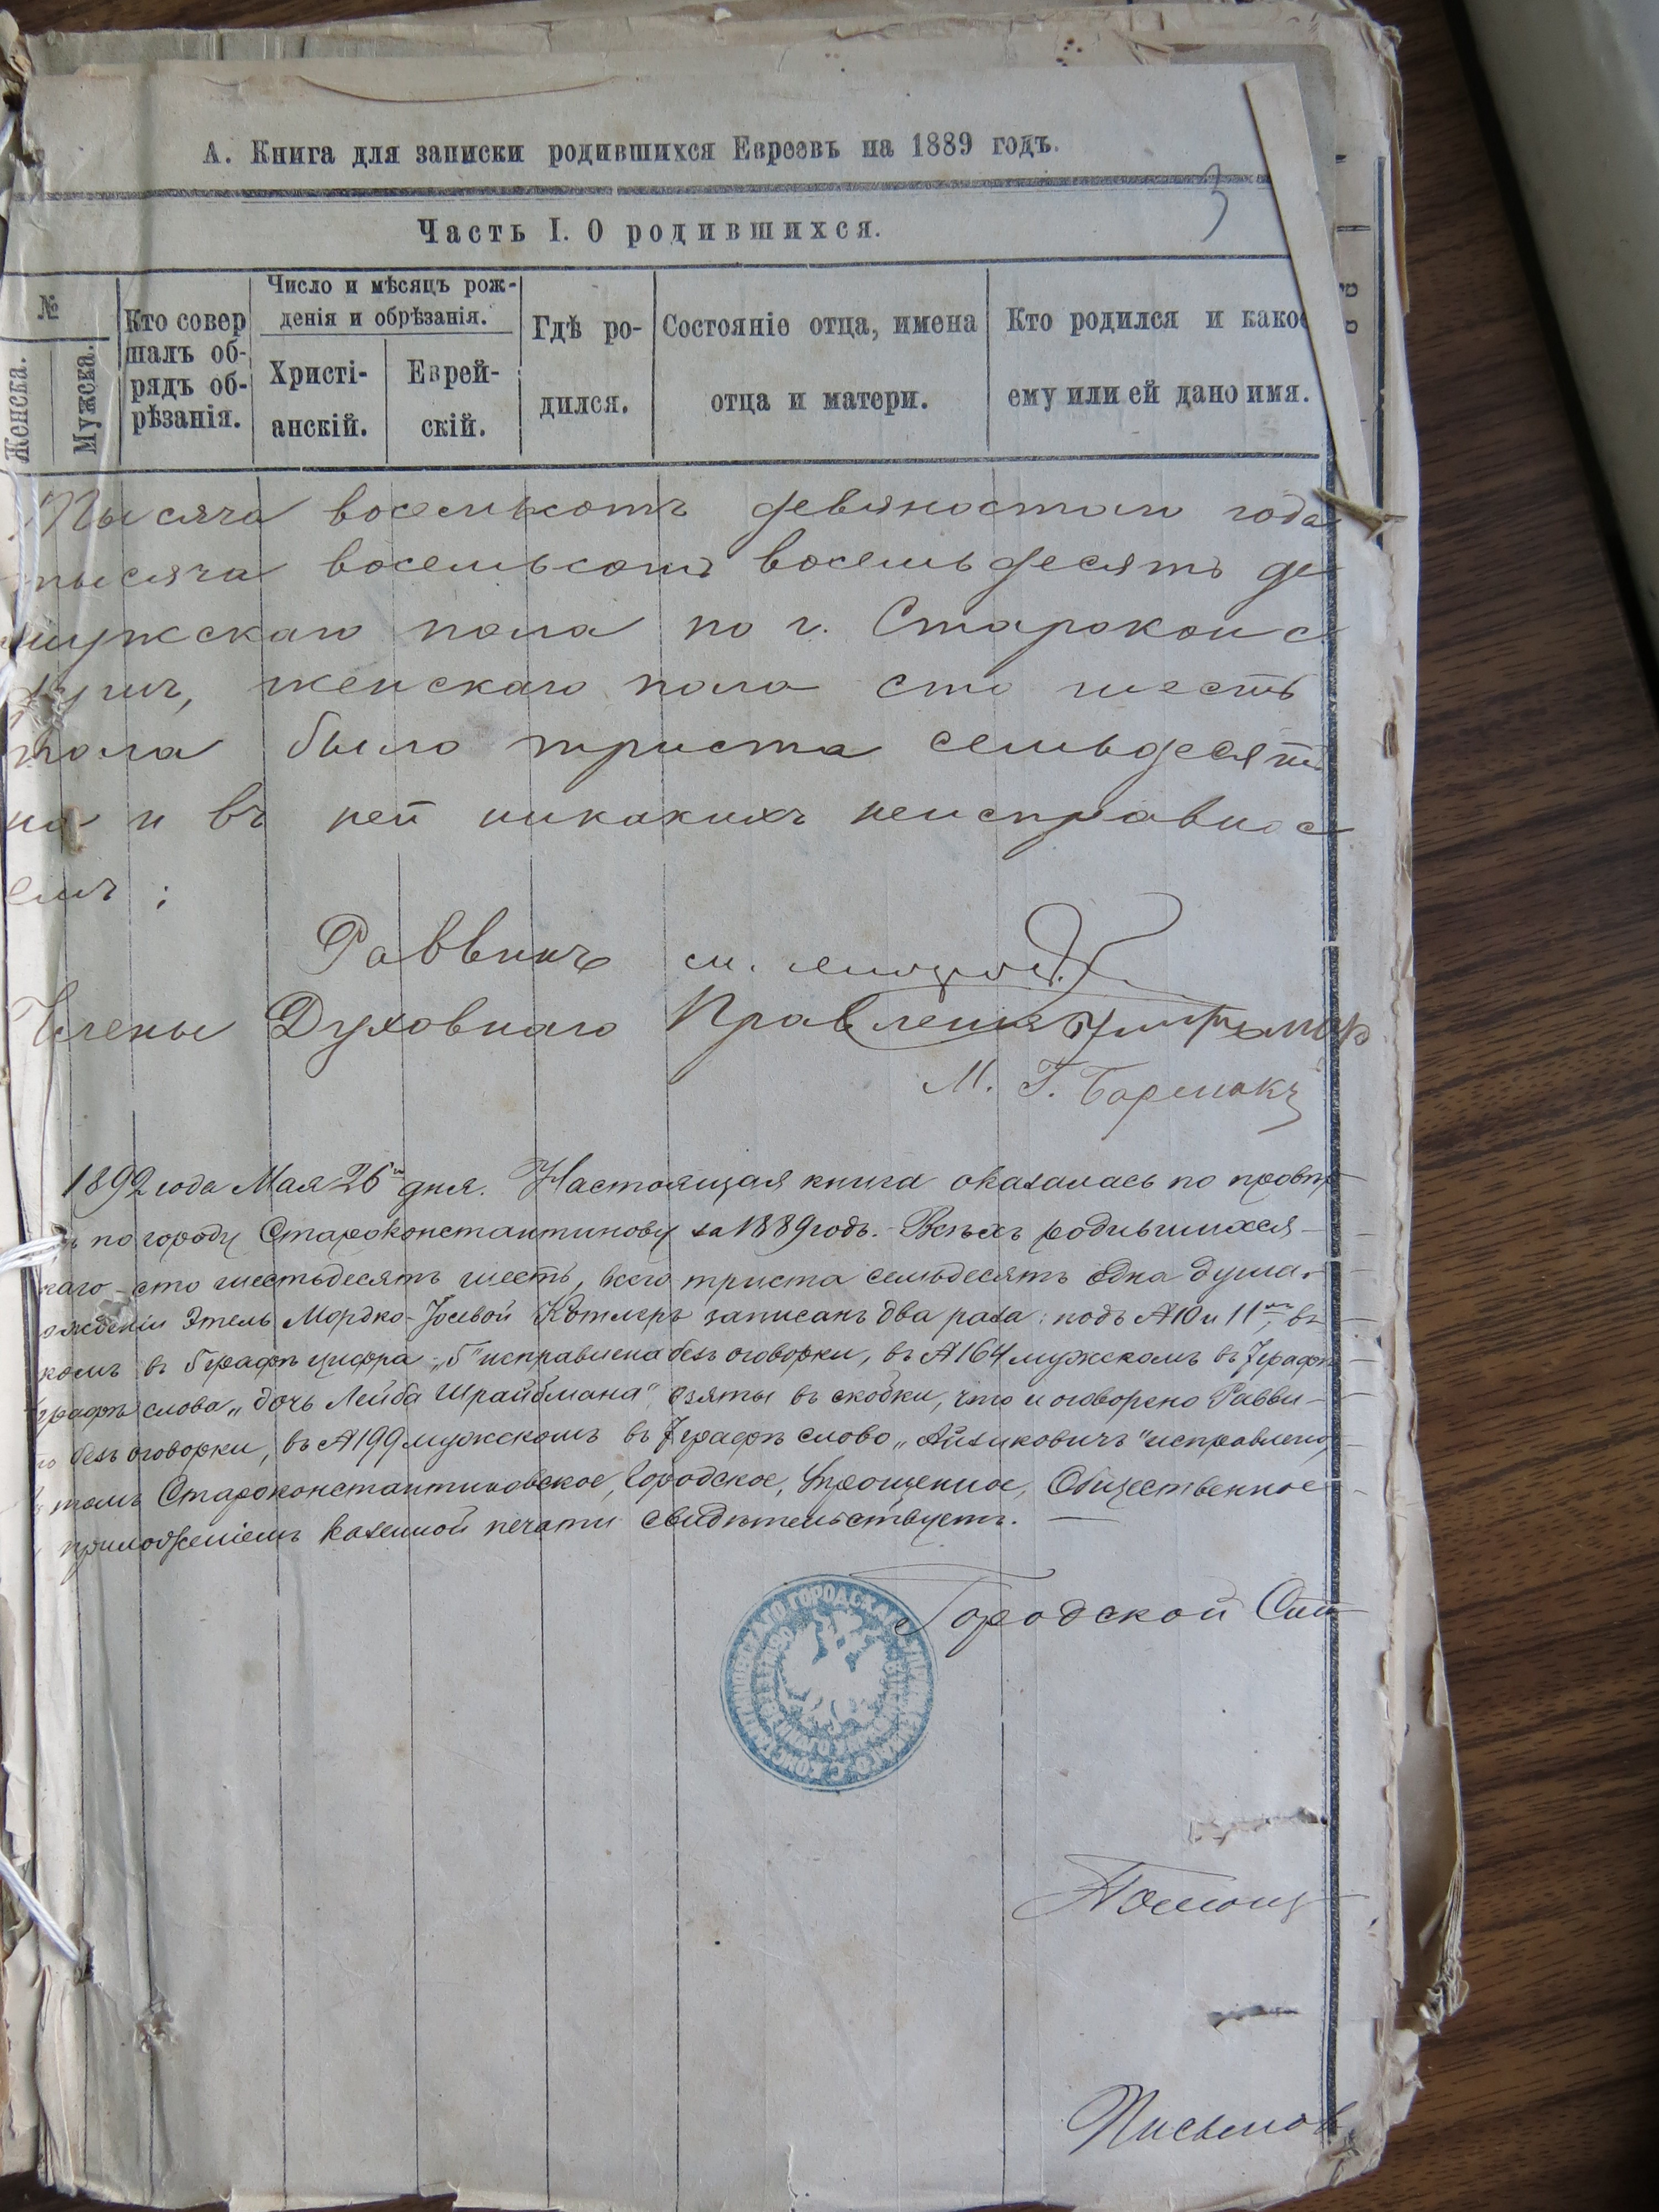 А. Книга для записки родившихся Евреевъ на 1889 годъ.
3
Часть I. О родившихся.
№
Женска.
Мужска.
Кто совер
шалъ об-
рядъ об-
рѣзанія.
Число и мѣсяцъ рож-
денія и обрѣзанія.
Христі-
анскій.
Еврей-
скій.
Гдѣ ро-
дился.
Состояніе отца, имена
отца и матери.
Кто родился и како
ему или ей дано имя.
Тысяча восемьсотъ девяностаго года
тысяча восемьсотъ восемьдесятъ де
мужскаго пола по г. Староконс
душъ, женскаго пола сто шесть
пола было триста семьдесят
на и въ ней никакихъ неисправнос
емъ;
Раввинъ м.
Члены Духовнаго Правленія
М. Г. Бормакъ
1892 года Мая 26го дня. Настоящая книга оказалась по провѣр
по городу Староконстантинову за 1889 годъ. - Всѣхъ родившихся -
каго - сто шестьдесятъ шесть, всего триста семьдесятъ одна душа.
ожденіи Этель Мордко-Іосевой Котлеръ записанъ два раза: подъ №10 и 11мъ, въ
комъ въ графѣ цифра „5" исправлена безъ оговорки, въ №164 мужскомъ въ 7 графѣ
графѣ слова „дочь Лейба Шрайбмана" взяты въ скобки, что и оговорено Равви-
безъ оговорки, въ №199 мужскомъ въ 7 графѣ слово „Айзиковичъ" исправлено
томъ Староконстантиновское, Городское, Упрощенное, Общественное
приложеніемъ казенной печати свидѣтельствуетъ. —
Городской Ста
Помощ
Письмов